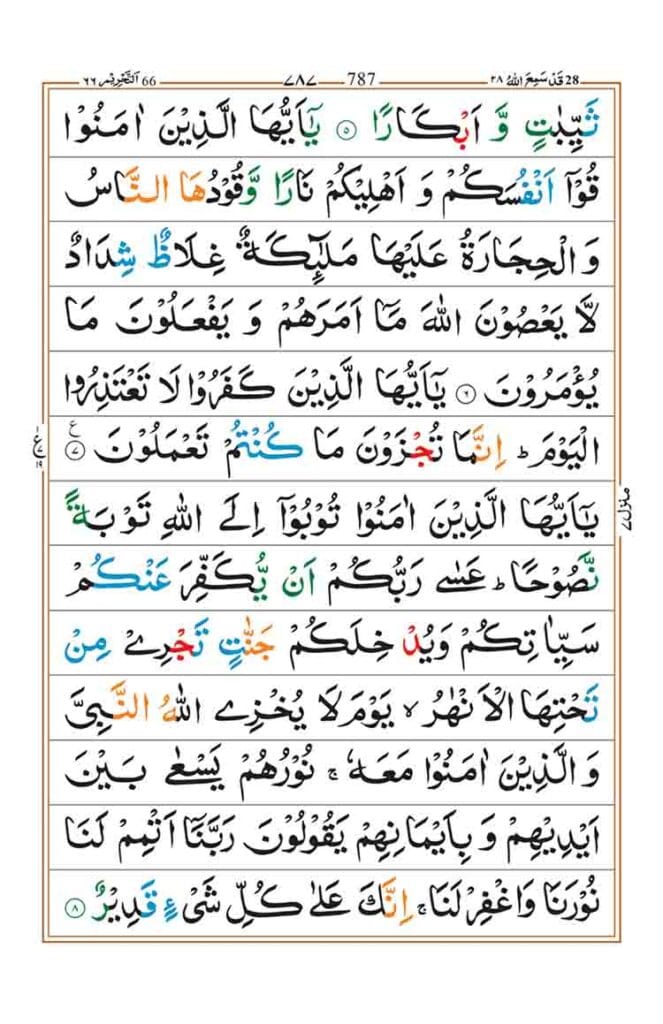 28 قد سمع الله ٢٨ 787 ٧٨٧ 66 التحريم ٦٦
ثَيِّبٰتٍ وَّ اَبْكَارًا ۝٥ يٰۤاَيُّهَا الَّذِيْنَ اٰمَنُوْا
قُوْۤا اَنْفُسَكُمْ وَ اَهْلِيْكُمْ نَارًا وَّقُوْدُهَا النَّاسُ
وَ الْحِجَارَةُ عَلَيْهَا مَلٰٓئِكَةٌ غِلَاظٌ شِدَادٌ
لَّا يَعْصُوْنَ اللّٰهَ مَاۤ اَمَرَهُمْ وَ يَفْعَلُوْنَ مَا
يُؤْمَرُوْنَ ۝٦ يٰۤاَيُّهَا الَّذِيْنَ كَفَرُوْا لَا تَعْتَذِرُوا
الْيَوْمَ ؕ اِنَّمَا تُجْزَوْنَ مَا كُنْتُمْ تَعْمَلُوْنَ ۝٧ ع
يٰۤاَيُّهَا الَّذِيْنَ اٰمَنُوْا تُوْبُوْۤا اِلَى اللّٰهِ تَوْبَةً
نَّصُوْحًا ؕ عَسٰى رَبُّكُمْ اَنْ يُّكَفِّرَ عَنْكُمْ
سَيِّاٰتِكُمْ وَيُدْخِلَكُمْ جَنّٰتٍ تَجْرِيْ مِنْ
تَحْتِهَا الْاَنْهٰرُ ۙ يَوْمَ لَا يُخْزِي اللّٰهُ النَّبِيَّ
وَ الَّذِيْنَ اٰمَنُوْا مَعَهٗ ۚ نُوْرُهُمْ يَسْعٰى بَيْنَ
اَيْدِيْهِمْ وَ بِاَيْمَانِهِمْ يَقُوْلُوْنَ رَبَّنَاۤ اَتْمِمْ لَنَا
نُوْرَنَا وَاغْفِرْ لَنَا ۚ اِنَّكَ عَلٰى كُلِّ شَيْءٍ قَدِيْرٌ ۝٨
منزل ٧